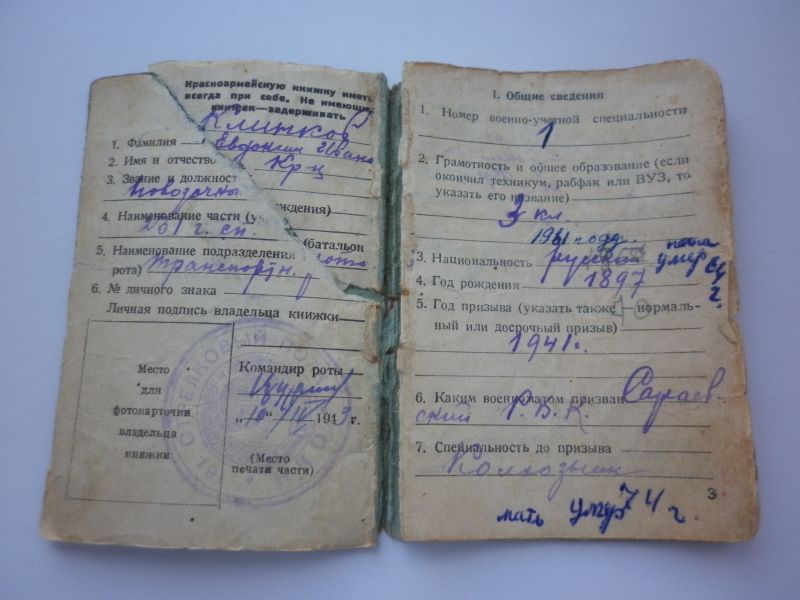 Красноармейскую книжку иметь
всегда при себе. Не имеющих
книжек—задерживать
Клинков
1. Фамилия
Евдоким Ивано
2. Имя и отчество
Кр-ц
3. Звание и должнос
Повозочн
ждения)
4. Наименование части (уч
261 г. сп.
(батальон
5. Наименование подразделения рота
рота) Транспортн.
6. № личного знака
Личная подпись владельца книжки
Место
для
фотокарточки
владельца
книжки
Командир роты
„10“ 1943 г.
(Место
печати части)
СТРЕЛКОВЫЙ ПО
I. Общие сведения
1. Номер военно-учетной специальности
1
2. Грамотность и общее образование (если
окончил техникум, рабфак или ВУЗ, то
указать его название)
3 кл.
1961 году
папа
3. Национальность русский умер
64
4. Год рождения 1897
г.
5. Год призыва (указать также нормаль-
ный или досрочный призыв)
1941 г.
6. Каким военкоматом призван Сараев-
ский Р.В.К.
7. Специальность до призыва
Колхозник
3
мать умер 74 г